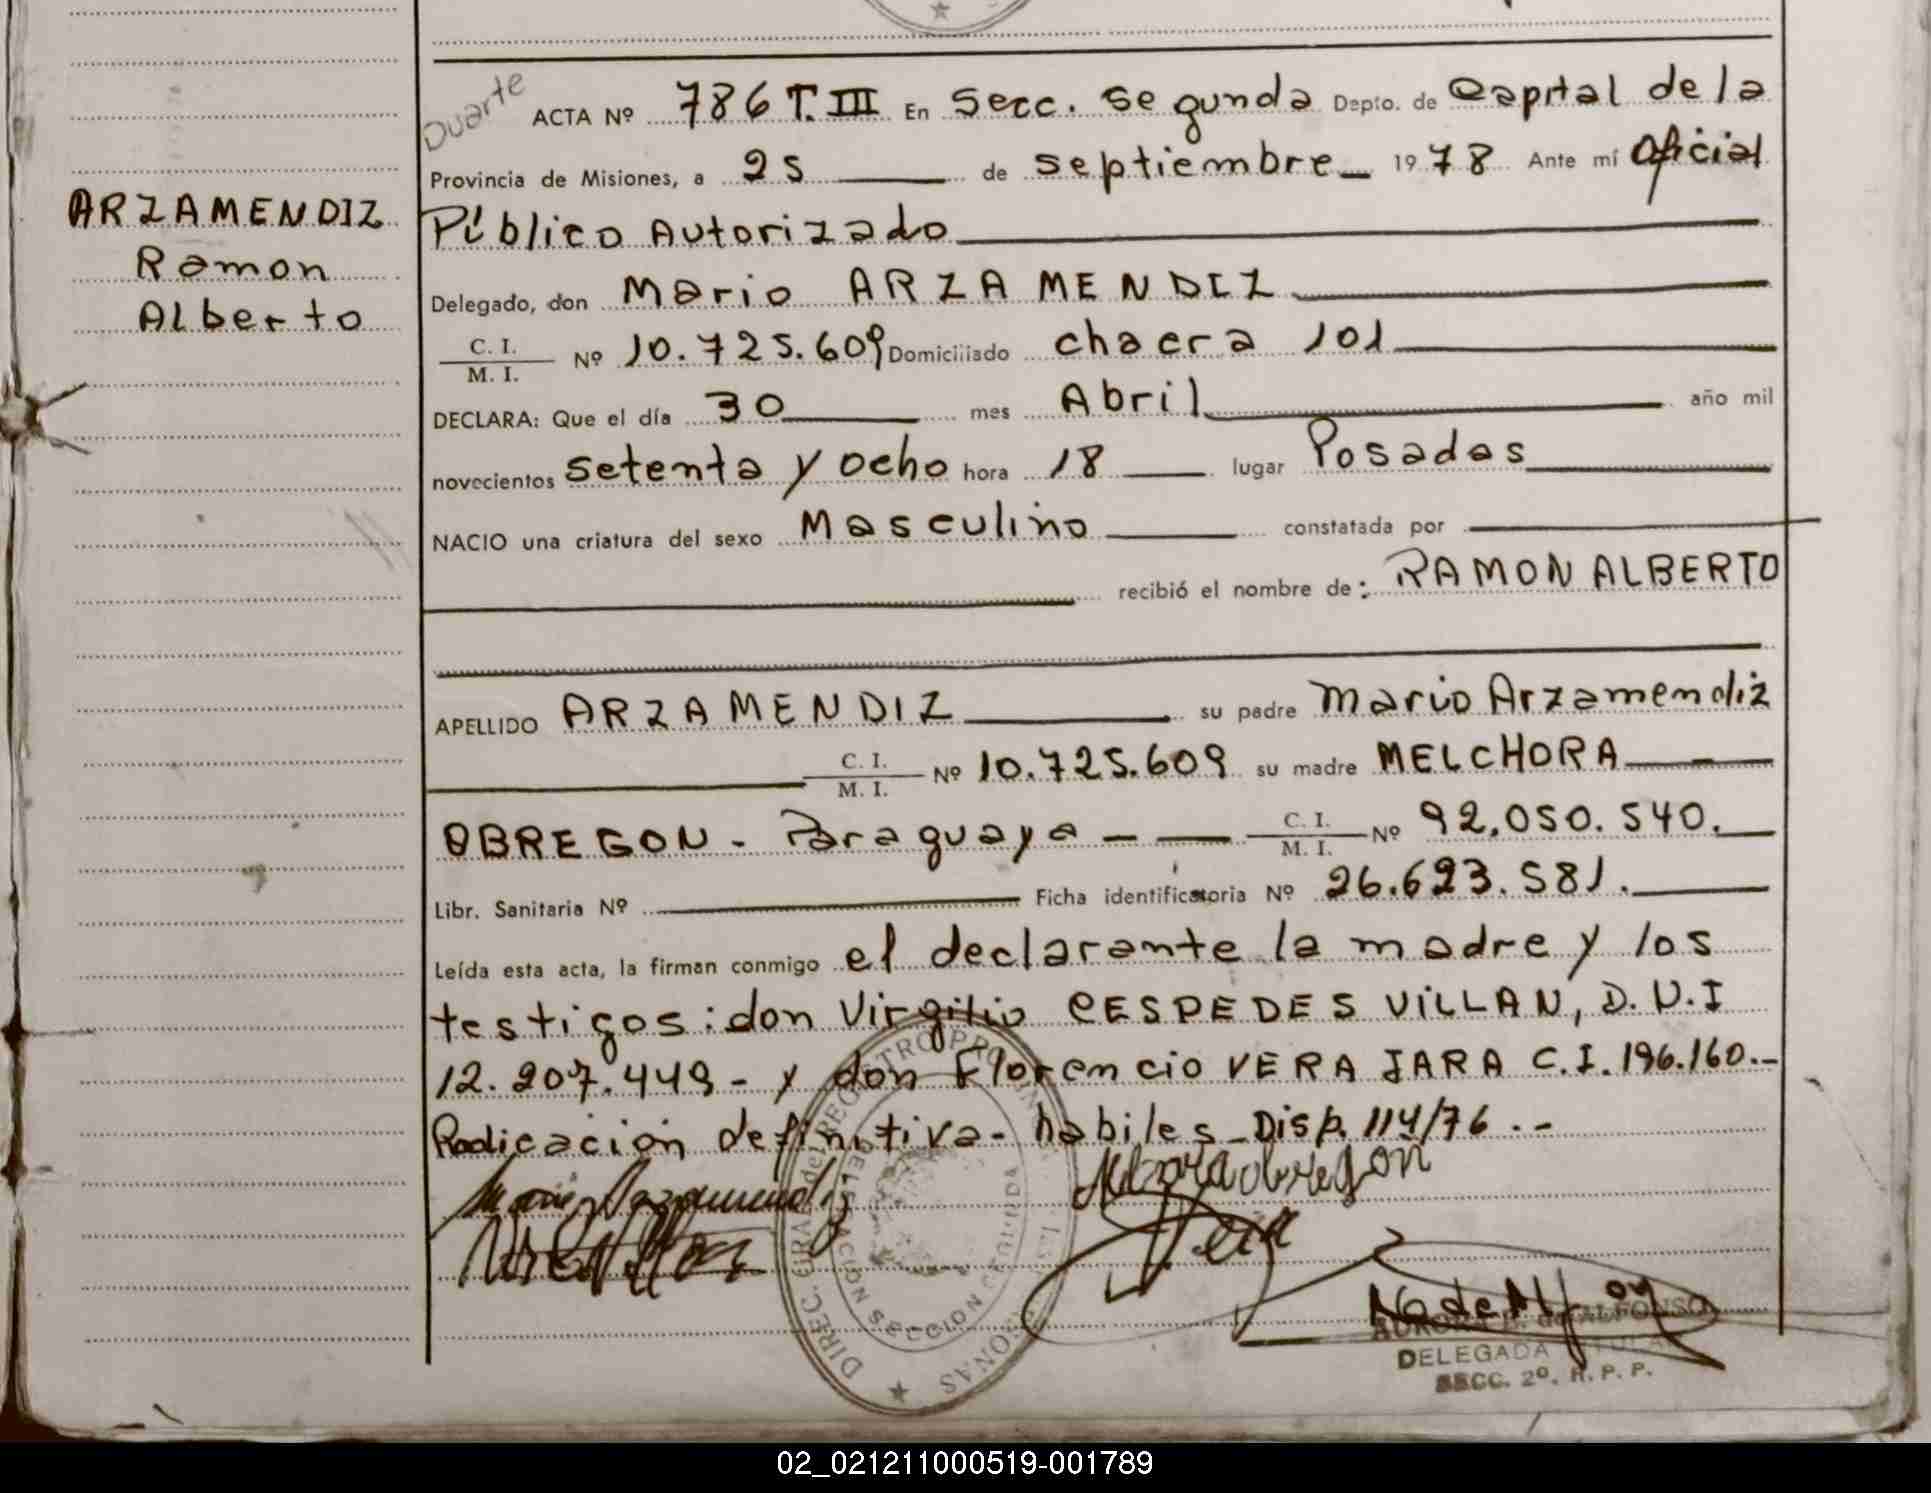 Duarte
ACTA Nº 786 T. III En Secc. Segunda Depto. de Capital de la
Provincia de Misiones, a 25 de septiembre 1978 Ante mí Oficial
Público Autorizado
ARZAMENDIZ
Ramon
Alberto
Delegado, don Mario ARZAMENDIZ
C. I.
M. I. Nº 10.725.609 Domiciliado chacra 101
DECLARA: Que el día 30 mes Abril año mil
novecientos setenta y ocho hora 18 lugar Posadas
NACIO una criatura del sexo Masculino constatada por
recibió el nombre de: RAMON ALBERTO
APELLIDO ARZAMENDIZ su padre Mario Arzamendiz
C. I.
M. I. Nº 10.725.609 su madre MELCHORA
OBREGON - Paraguaya - C. I.
M. I. Nº 92.050.540.
Libr. Sanitaria Nº Ficha identificatoria Nº 26.623.581.
Leída esta acta, la firman conmigo el declarante la madre y los
testigos: don Virgilio CESPEDES VILLAN, D.N.I
12.207.449 - y don Florencio VERA JARA C.I. 196.160.-
Radicación definitiva - habiles - Disp. 114/76.-
DELEGADA TITULAR
SECC. 2º. R. P. P.
02_021211000519-001789